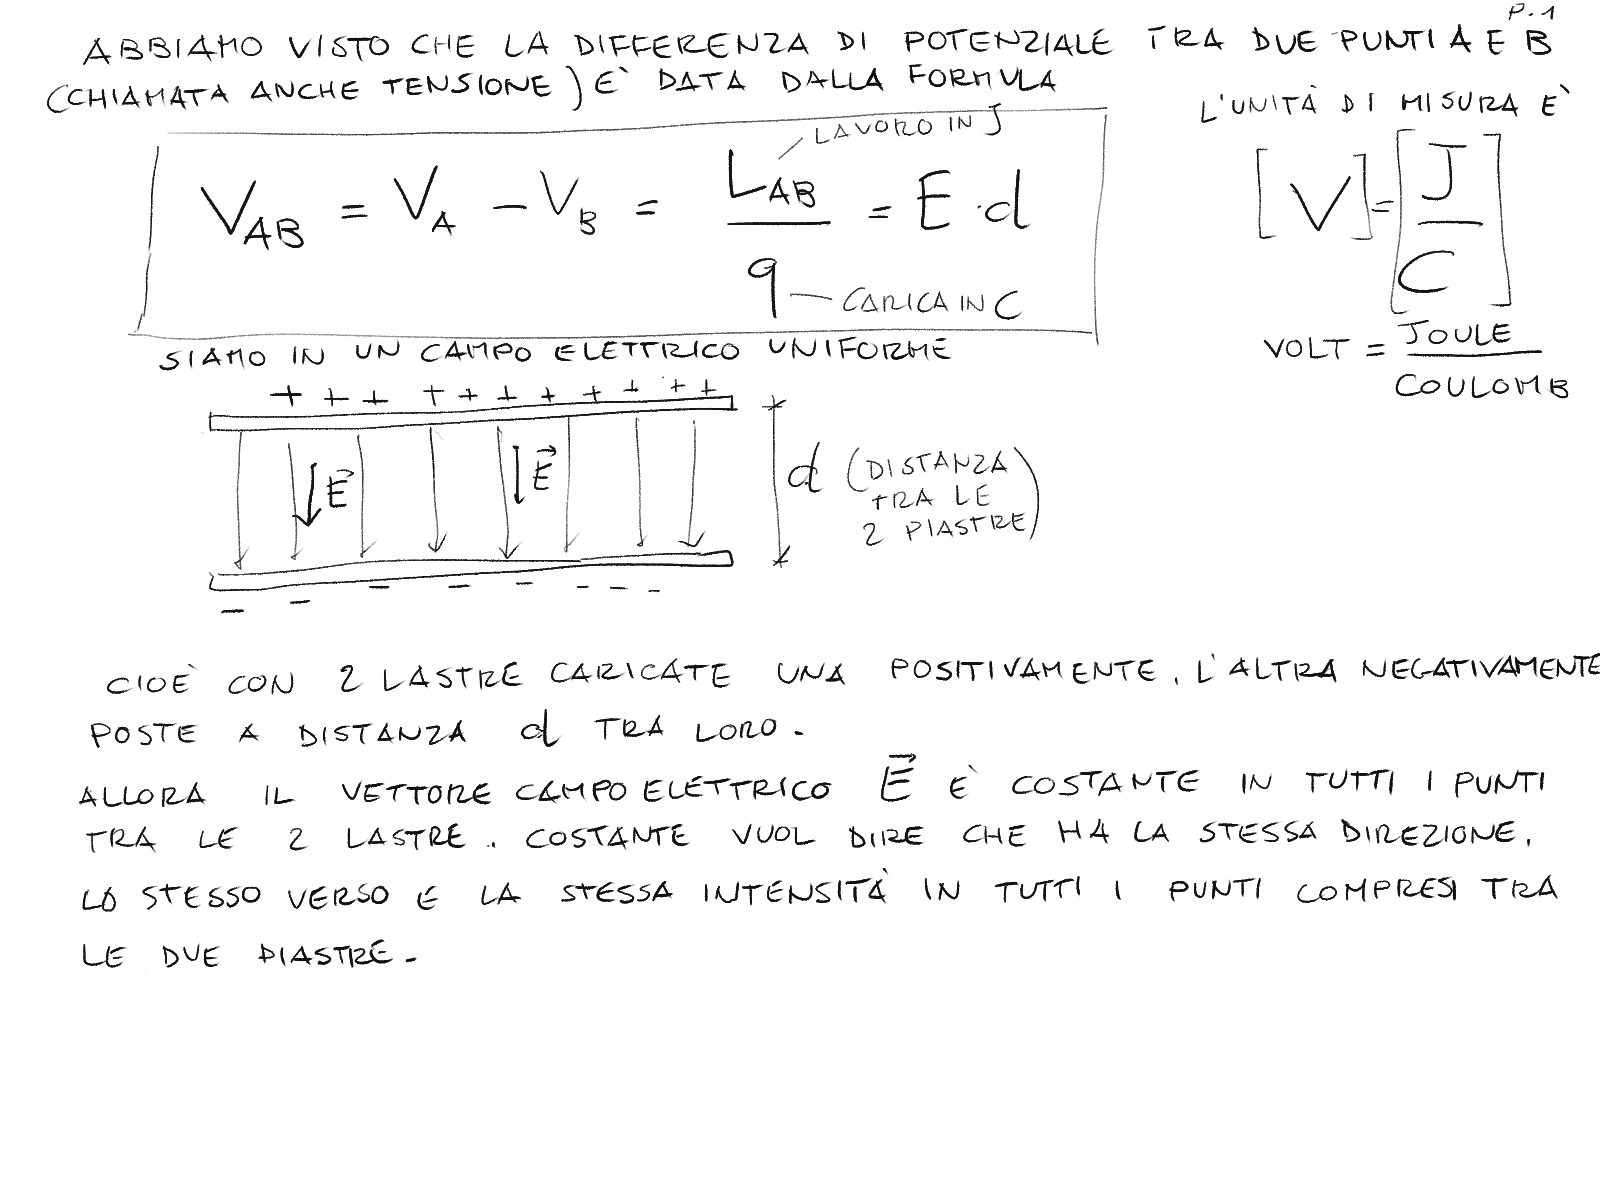 P.1
ABBIAMO VISTO CHE LA DIFFERENZA DI POTENZIALE TRA DUE PUNTI A E B
(CHIAMATA ANCHE TENSIONE) E' DATA DALLA FORMULA
L'UNITÀ DI MISURA E'
LAVORO IN J
V_AB = V_A - V_B = L_AB / q = E · d
CARICA IN C
[V] = [J / C]
VOLT = JOULE / COULOMB
SIAMO IN UN CAMPO ELETTRICO UNIFORME
+ + + + + + + + + + +
E⃗ E⃗
d (DISTANZA
TRA LE
2 PIASTRE)
- - - - - - - -
CIOÈ CON 2 LASTRE CARICATE UNA POSITIVAMENTE, L'ALTRA NEGATIVAMENTE
POSTE A DISTANZA d TRA LORO.
ALLORA IL VETTORE CAMPO ELETTRICO E⃗ E' COSTANTE IN TUTTI I PUNTI
TRA LE 2 LASTRE. COSTANTE VUOL DIRE CHE HA LA STESSA DIREZIONE,
LO STESSO VERSO E LA STESSA INTENSITÀ IN TUTTI I PUNTI COMPRESI TRA
LE DUE PIASTRE.